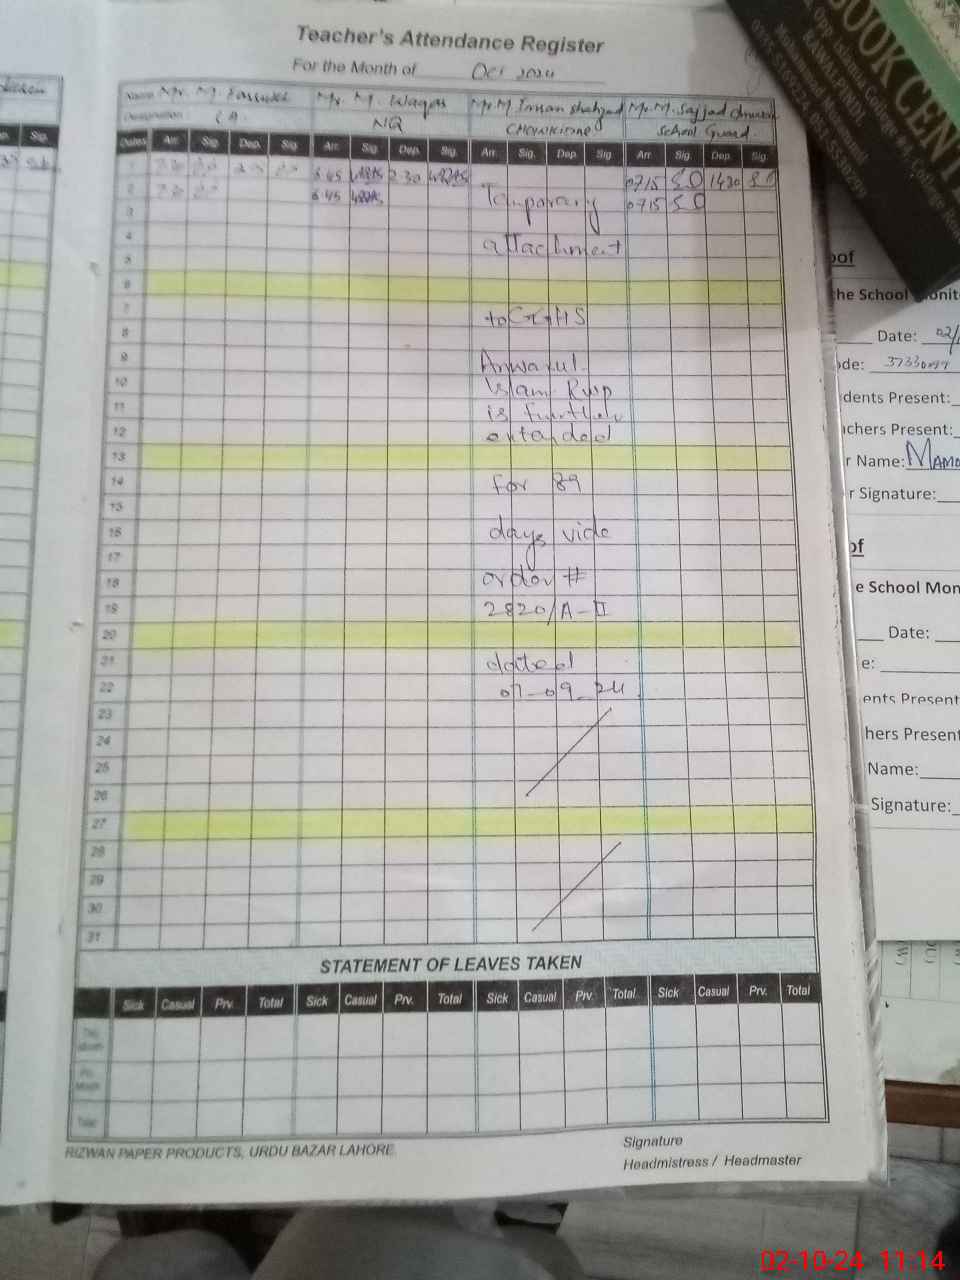 Teacher's Attendance Register
For the Month of Oct 2024
Name Mr. M. Mr. M. Waqas Mr. M. Imran shahzad Mr. M. Sajjad
Designation NQ CHOWKIDAR School Guard.
Dates Arr. Sig. Dep. Sig. Arr. Sig. Dep. Sig. Arr. Sig. Dep. Sig. Arr. Sig. Dep. Sig.
1 6 45 2 30 0715 S.O 1430 S.O
2 6 45 Temporary 0715 S.O
3
4 attachment
5
6
7 to GGHS
8
9 Anwarul
10 Islam Rwp
11 is further
12 extended
13
14 for 89
15
16 days vide
17
18 order #
19 2820/A-II
20
21 dated
22 07-09-24
23
24
25
26
27
28
29
30
31
STATEMENT OF LEAVES TAKEN
Sick Casual Prv. Total Sick Casual Prv. Total Sick Casual Prv. Total Sick Casual Prv. Total
Total
RIZWAN PAPER PRODUCTS, URDU BAZAR LAHORE
Signature
Headmistress / Headmaster
Sig.
BOOK CENT
Opp Islamia College
RAWALPINDI.
Muhammad
of
the School Monit
Date: 02/
ode: 
dents Present:
chers Present:
r Name:
r Signature:
of
e School Mon
Date:
e:
ents Present
hers Present
Name:
Signature:
02-10-24 11:14